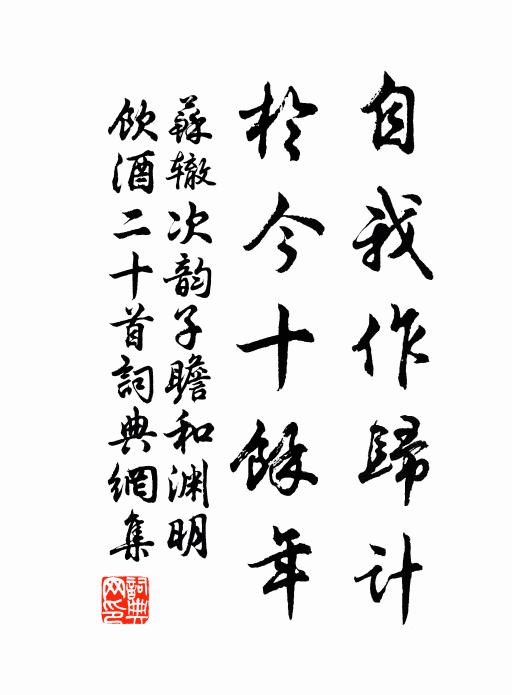 自我作歸計
於今十餘年
蘇辙次韵子瞻和渊明
飲酒二十首詞典網集
詞典
网印